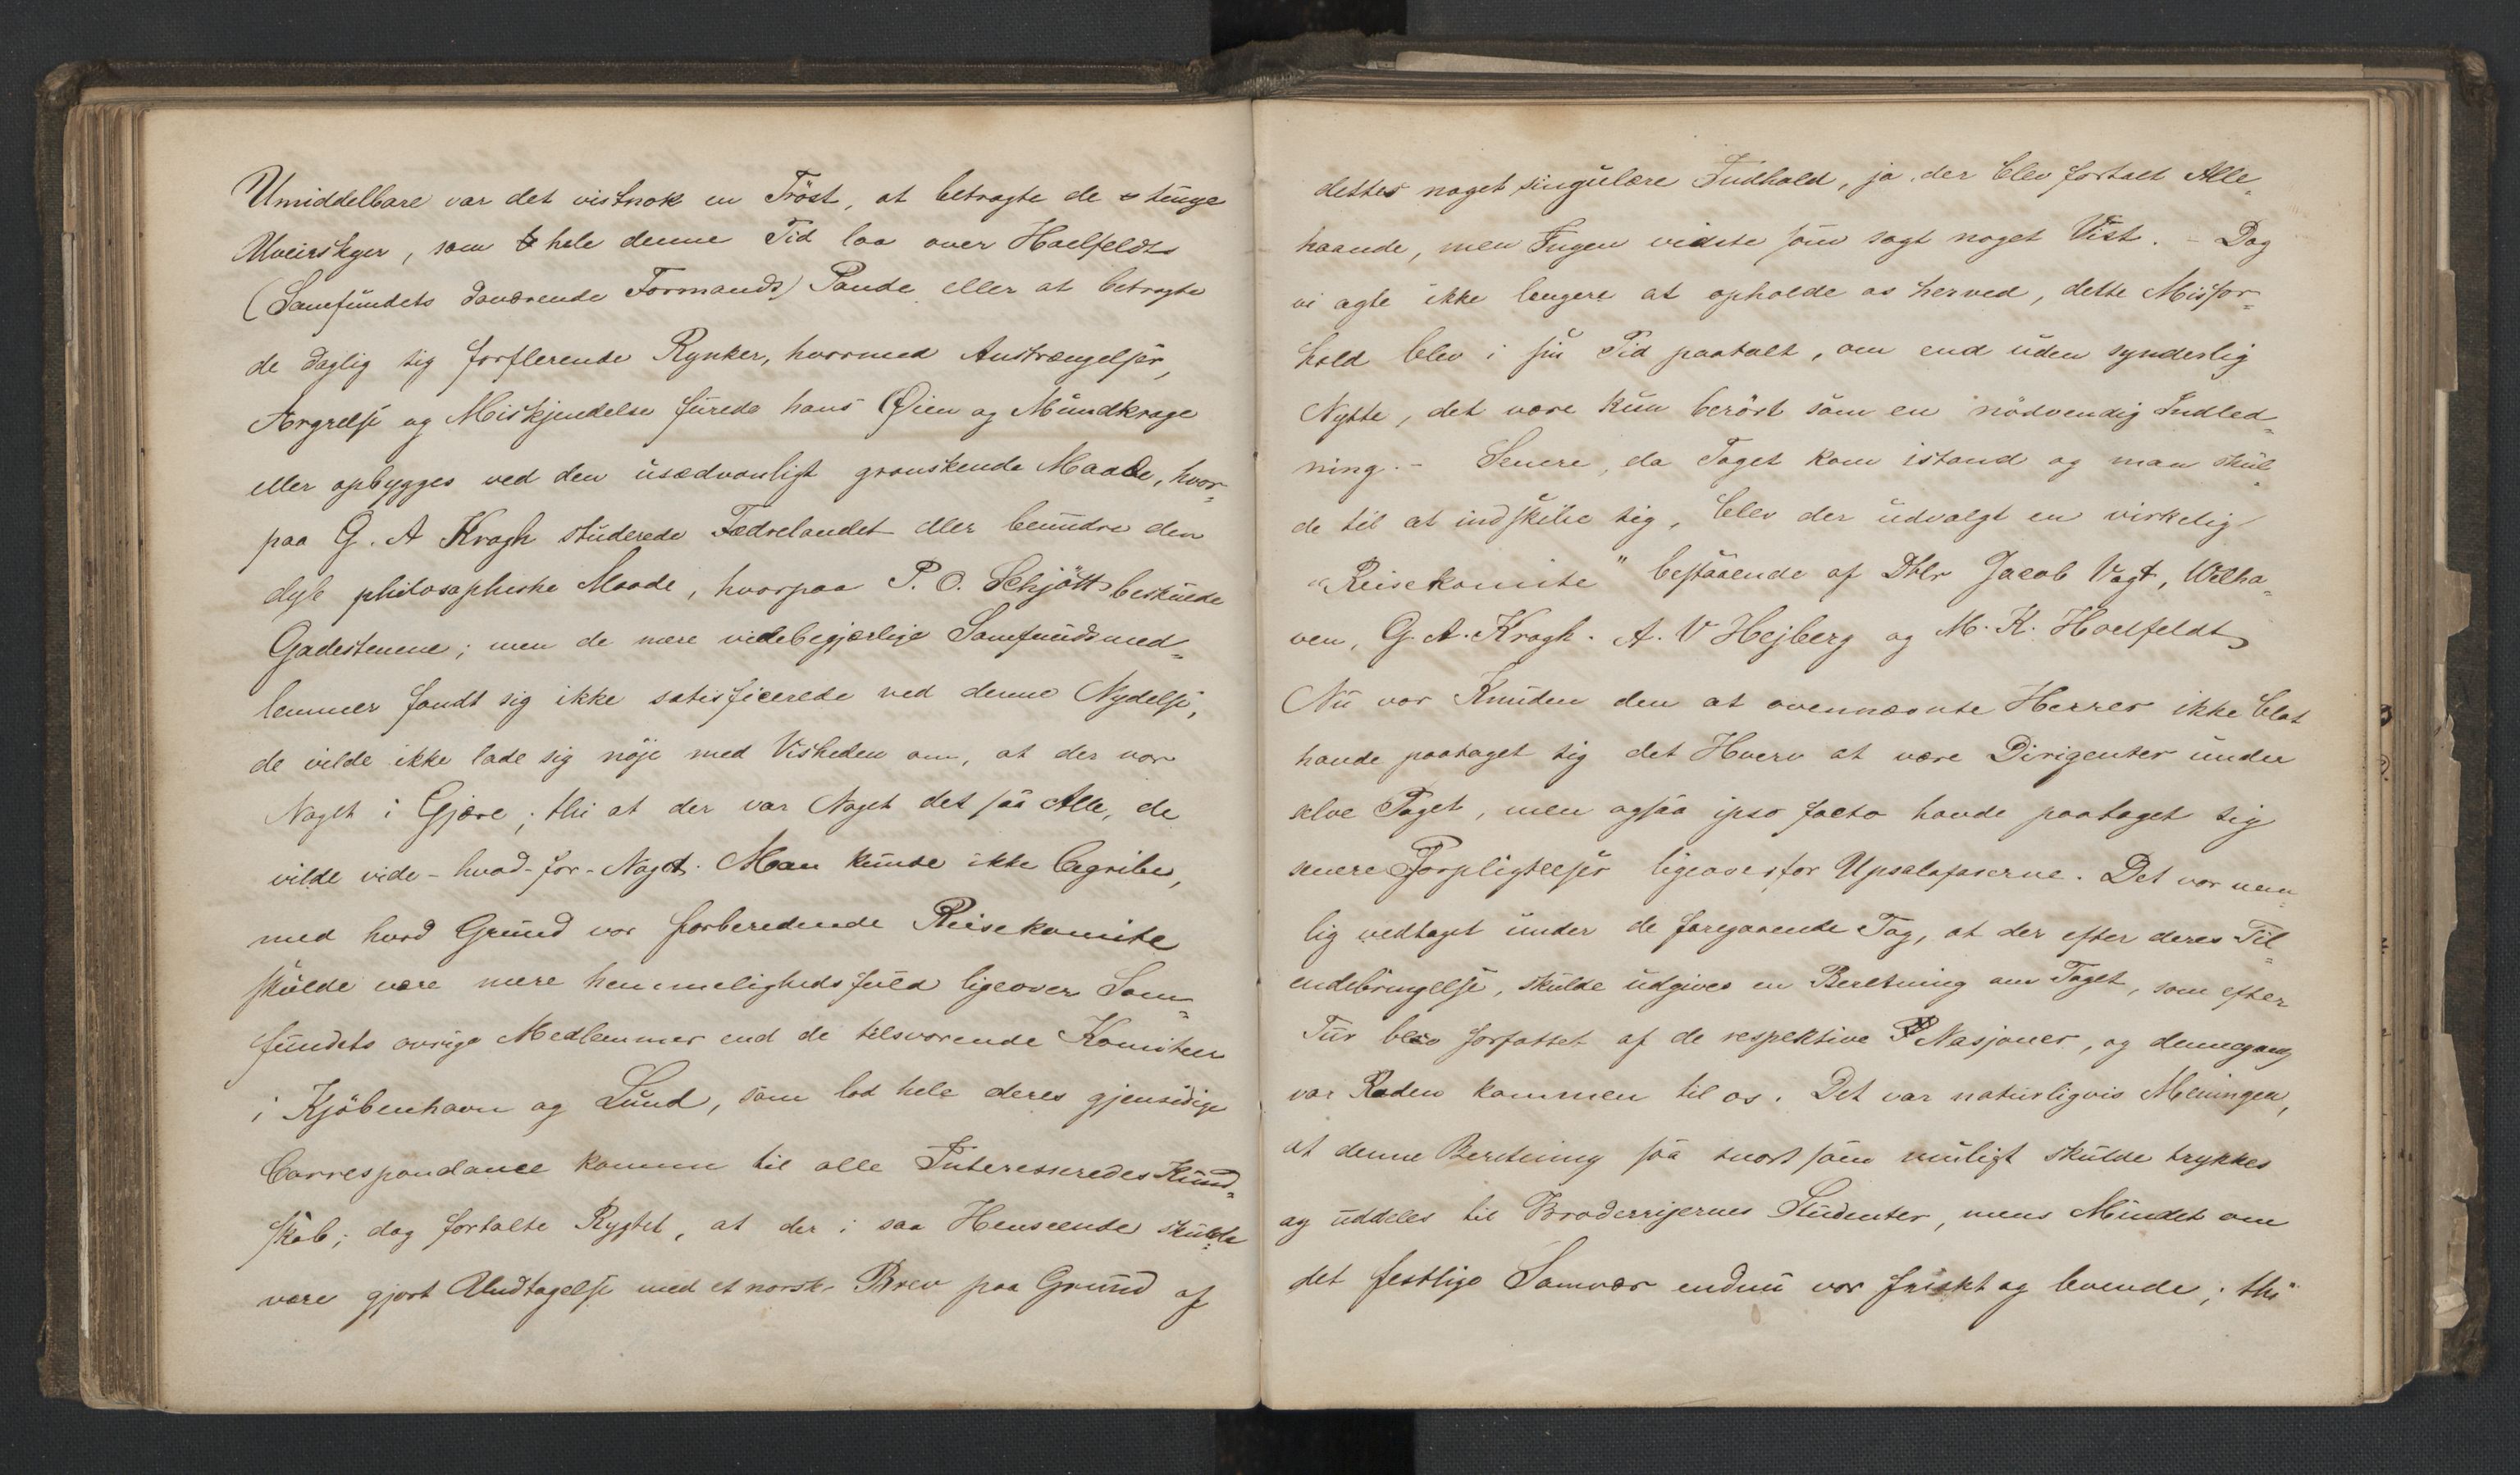 Umiddelbare var det vistnok en Tröst, at betragte de tunge
Uveirskyer, som hele denne Tid laa over Haelfeldts
(Samfundets daværende Formands) Pande eller at betragte
de daglig sig forflerende Rynker, hvormed Anstrængelser,
Ærgrelse og Miskjendelse furede hans Øien og Mundkroge
eller opbygges ved den usædvanligt granskende Maade, hvor-
paa G. A Kragh studerede Fædrelandet eller beundre den
dybe philosophiske Maade, hvorpaa P. O. Schjött beskuede
Gadestenene; men de mere videbegjærlige Samfundsmed-
lemmer fandt sig ikke satisficerede ved denne Nydelse,
de vilde ikke lade sig nöje med Visheden om, at der var
Noget i Gjære; thi at der var Noget det saa Alle, de
vilde vide - hvad-for-Noget. Man kunde ikke begribe,
med hvad Grund vor forberedende Reisekomite
skulde være mere hemmelighedsfuld ligeover Sam-
fundets øvrige Medlemmer end de tilsvarende Komiteer
i Kjöbenhavn og Lund, som lod hele deres gjensidige
Correspondance komme til alle Interesseredes Kund-
skab; dog fortalte Rygtet, at der i saa Henseende skulde
være gjort Undtagelse med et norsk Brev paa Grund af
dettes noget singulære Indhold, ja der blev fortalt Alle-
haande, men Ingen vidste som sagt noget Vist. - Dog
vi agte ikke længere at opholde os herved, dette Misfor-
hold blev i sin Tid paatalt, om end uden synderlig
Nytte, det være kun berört som en nödvendig Indled-
ning. - Senere, da Toget kom istand og man skul-
de til at indskibe sig, blev der udvalgt en virkelig
"Reisekomite" bestaaende af Dhlr Jacob Vogt, Welha-
ven, G. A. Kragh. A. V Hejberg og M. K. Haelfeldt
Nu var Knuden den at ovennævnte Herrer ikke blot
havde paataget sig det Hverv at være Dirigenter under
selve Toget, men ogsaa ipso facto havde paataget sig
senere Forpligtelser ligeoverfor Upsalafarerne. Det var nem-
lig vedtaget under de foregaaende Tog, at der efter deres Til-
endebringelse, skulde udgives en Beretning om Toget, som efter
Tur blev forfattet af de respektive Nasjoner, og dennegang
var Raden kommen til os. Det var naturligvis Meningen,
at denne Beretning saa snart som muligt skulde trykkes
og uddeles til Broderrigernes Studenter, mens Mindet om
det festlige Samvær endnu var friskt og levende; thi